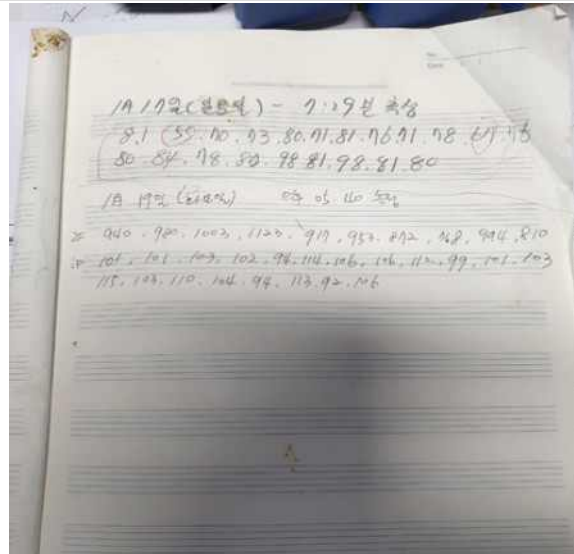 1月 17일 (일요일) - 7:29분 측정
8.1 (55. 70. 73. 80. 71. 81. 76. 71. 78. 65. 76
80. 84. 78. 82. 98. 81. 98. 81. 80
1月 19일 (화요일) 05 40 측정
940. 980. 1003. 1123. 917. 953. 872. 768. 994. 810
101. 101. 103. 102. 94. 114. 106. 106. 112. 99. 101. 103
115. 103. 110. 104. 94. 113. 92. 106